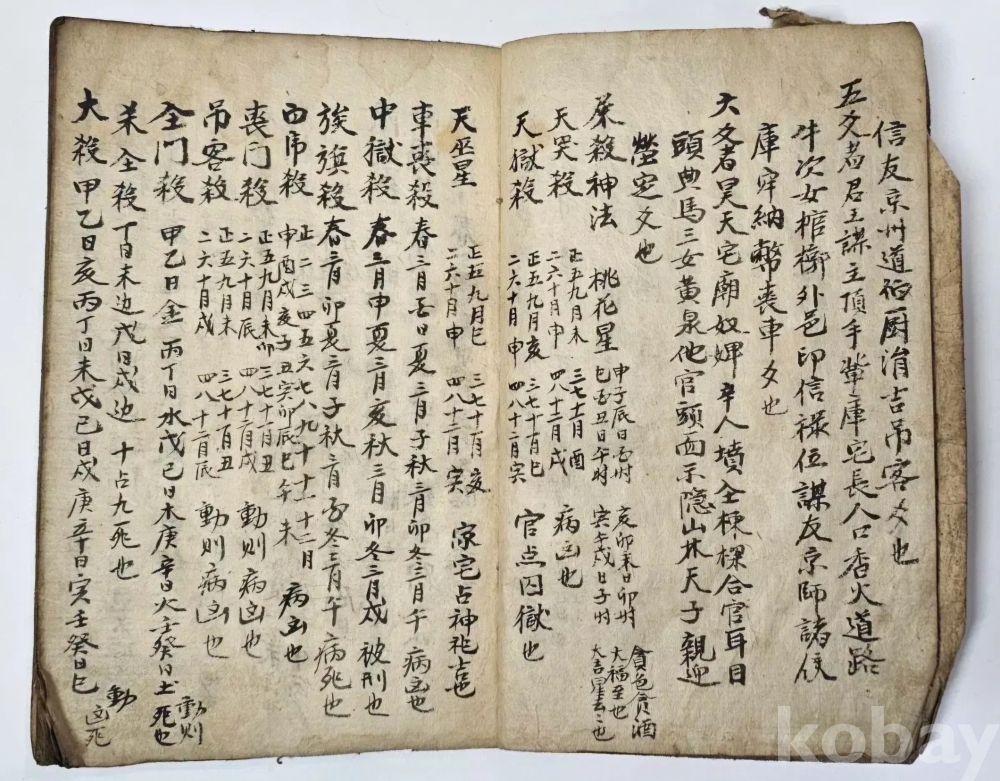 信友京州道伯厨涓吉吊客爻也
五爻者君王謀主頂手輦庫宅長人口香火道路
牛次女棺槨外邑印信祿位謀友京師諸侯
庫穿納幣喪車爻也
六爻者昊天宅廟奴婢卒人墳全棟樑合官耳目
頭典馬三女黃泉他官頭面示隱山林天子親迎
塋定爻也
桃花星 申子辰日酉時 亥卯未日卯時 貪色貪酒
巳酉丑日午時 寅午戌日子時 大福至也
殺神法 大吉星去之也
天哭殺 正五九月未 三七十一月酉 病凶也
二六十月申 四八十二月戌
天獄殺 正五九月亥 三七十一月巳 官点囚獄也
二六十月申 四八十二月寅
天巫星 正五九月巳 三七十一月亥 家宅占神祀吉也
二六十月申 四八十二月寅
車喪殺 春三月酉日夏三月子秋三月卯冬三月午 病凶也
中獄殺 春三月申夏三月亥秋三月卯冬三月戌 被刑也
旗殺 春三月卯夏三月子秋三月酉冬三月午 病死也
白虎殺 正二三四五六七八九十十一十二月 病凶也
申酉戌亥子丑寅卯辰巳午未
喪門殺 正五九月未 三七十一月丑 動則病凶也
二六十月辰 四八十二月戌
吊客殺 正五九月未 三七十一月丑 動則病凶也
二六十月戌 四八十二月辰
金門殺 甲乙日金 丙丁日水戊己日木庚辛日火壬癸日土 動則死也
全殺丁日未边戊日戌边 十占九死也
大殺甲乙日亥丙丁日未戊己日戌庚辛日寅壬癸日巳 動凶死
kobay